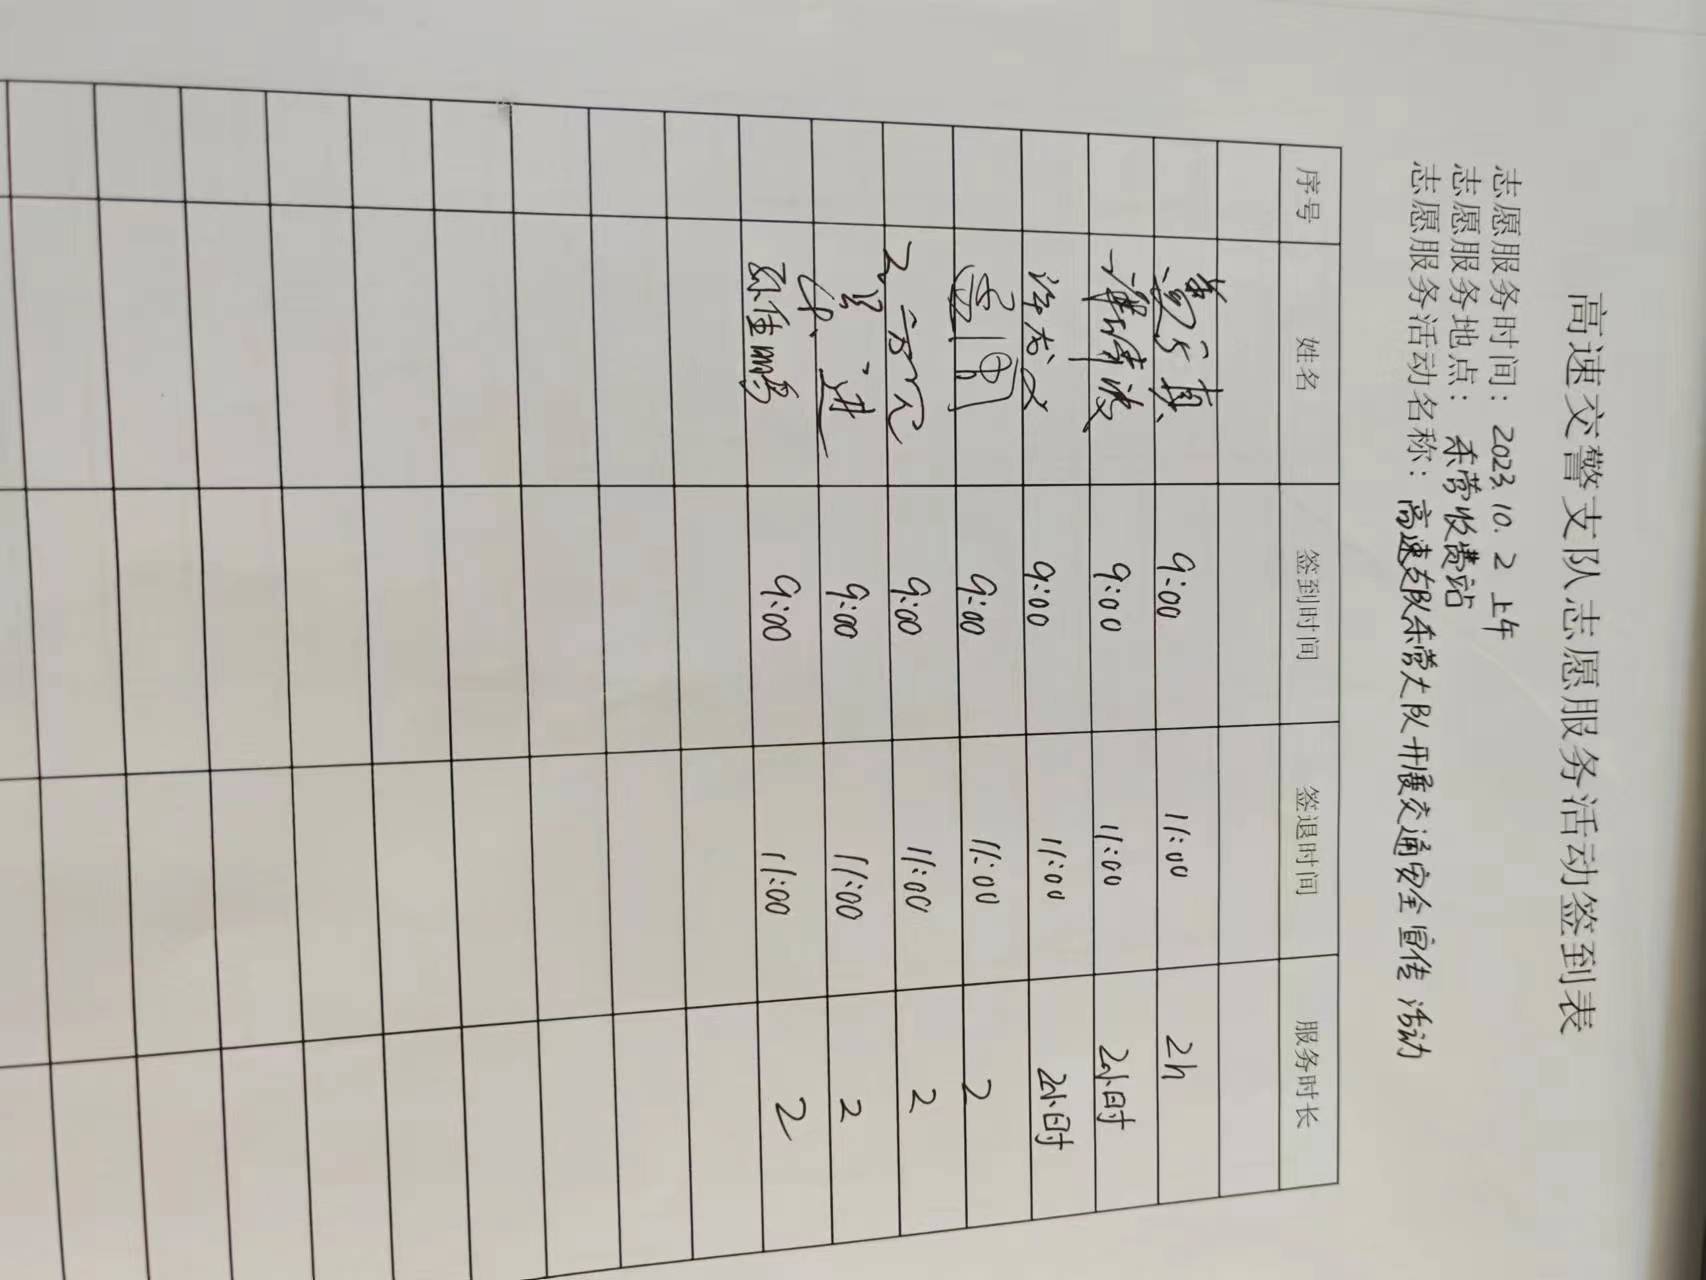 高速交警支队志愿服务活动签到表
志愿服务时间：2023.10.2 上午
志愿服务地点：禾营收费站
志愿服务活动名称：高速支队禾营大队开展交通安全宣传活动
序号 姓名 签到时间 签退时间 服务时长
9:00 11:00 2h
9:00 11:00 2小时
9:00 11:00 2小时
9:00 11:00 2
9:00 11:00 2
9:00 11:00 2
孙佳鹏 9:00 11:00 2